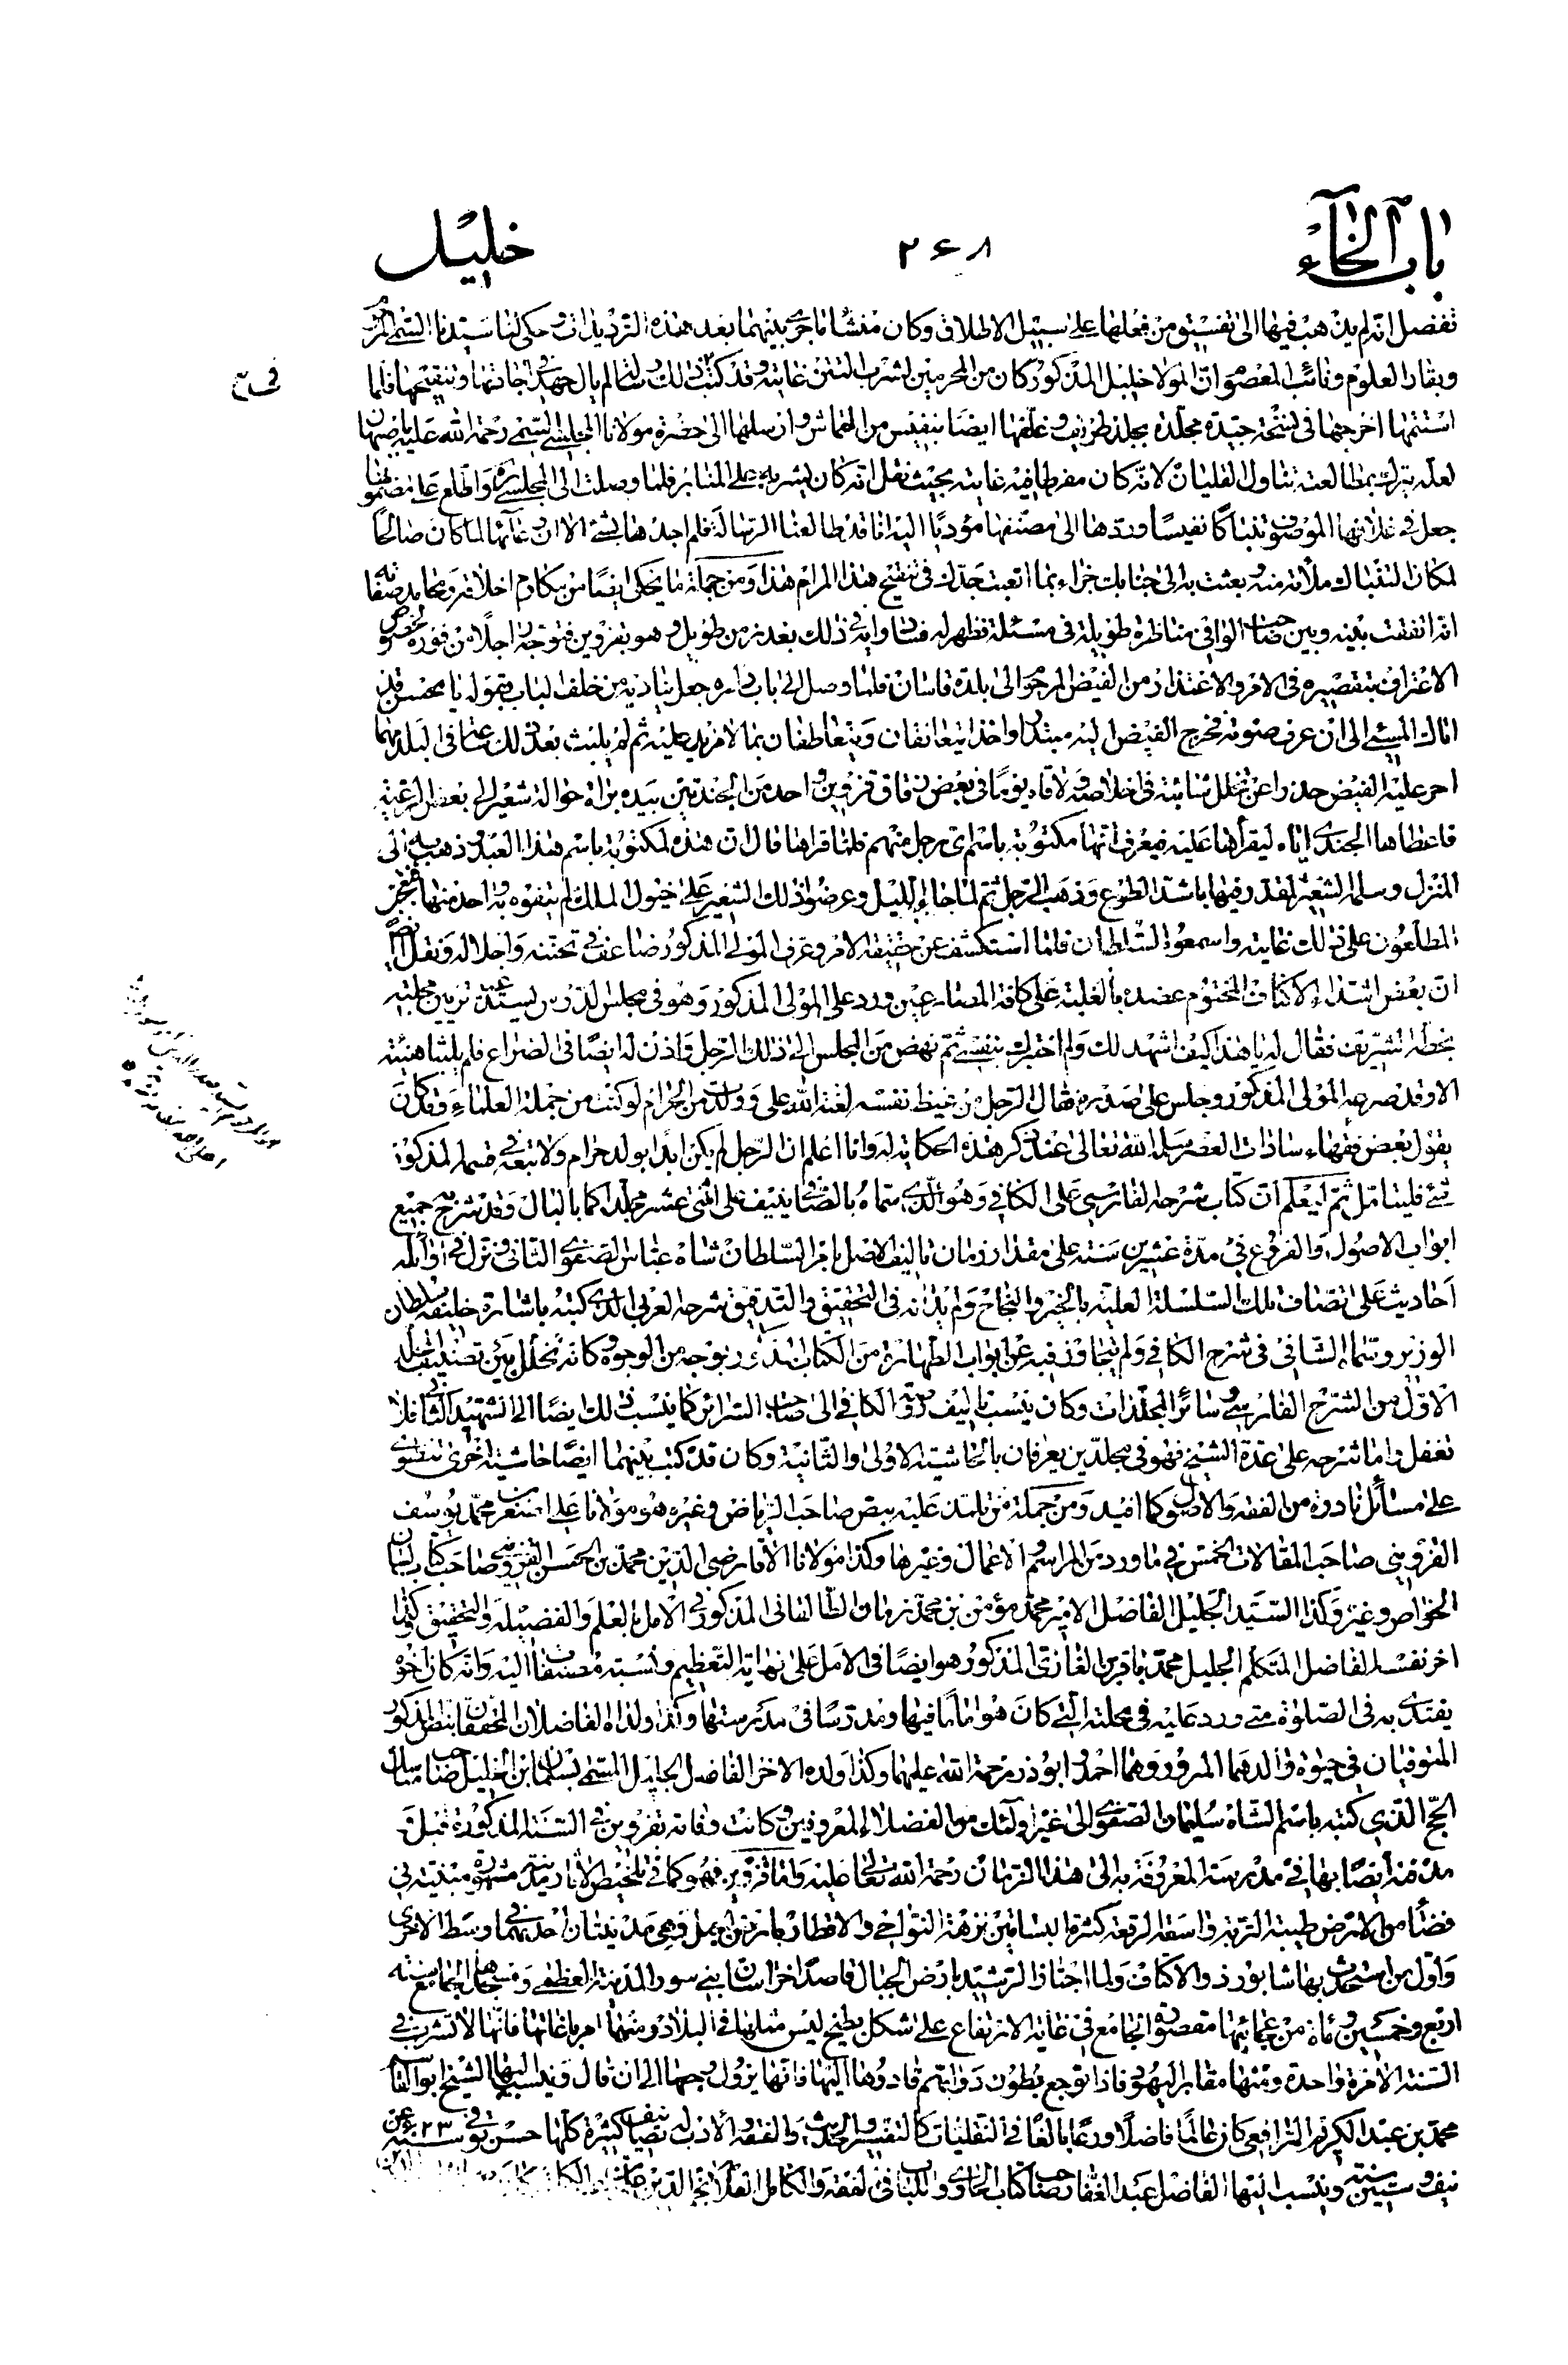 باب الخاء
٢٦٨
خليل
تفصل انه لم يذهب فيها الى تفسيق من فعلها على سبيل الاطلاق وكان منشأ ما جرى بينهما بعد هذه الترديدات وحكى لنا سيدنا السمى
وبقار العلوم ونائب المعصوم ان المولا خليل المذكور كان من المحرمين لشرب التتن غايته وقد كتب فى ذلك رسالة لم يال جهدا فى اجادتها وتنقيحها فلما
استتمها اخرجها فى نسخة جيدة مجلدة بجلد ظريف وغلفها ايضا بنفيس من القماش وارسلها الى حضرة مولانا المجلسى السمى رحمة الله عليه باصبهان
لعله يترك بمطالعته تناول القليان لانه كان مفرطا فيه غايته بحيث نقل انه كان يشربه على المنابر فلما وصلت الى المجلسى ره واطلع على مضمونها
جعل فى غلافها الموصوف تنباكا نفيسا وردها الى مصنفها مؤديا اليه انا قد طالعنا الرسالة فلم اجدها بشئ الا ان غلافها لما كان صالحا
لمكان التنباك ملأته منه وبعثت به الى جنابك جزاء بما اتعبت جدك فى تنقيح هذا المرام هذا ومن جملة ما يحكى ايضا من مكارم اخلاقه ومحامد صفاته
انه اتفقت بينه وبين صاحب الوافى مناظرة طويلة فى مسئلة فظهر له فساد رايه فى ذلك بعد زمن طويل وهو بقزوين فتوجه راجلا من فوره لخصوص
الاعتراف بتقصيره فى الامر والاعتذار من الفيض المرحوم الى بلدة قاسان فلما وصل الى باب داره جعل يناديه من خلف الباب بقوله يا محسن قد
اتاك المسئ الى ان عرف صوته فخرج الفيض اليه مبتدرا واخذا يتعانقان ويتعاطفان بما لا مزيد عليه ثم لم يلبث بعد ذلك ساعة فى البلد مهما
اصر عليه الفيض حذرا عن تخلل شائبة فى خلوصه ولاقاه يوما فى بعض زقاق قزوين واحد من الجنديين بيده براة حوالة شعير الى بعض الرعية
فاعطاها الجندى اياه ليقرأها عليه فيعرف انها مكتوبة باسم اى رجل منهم فلما قراها قال ان هذه لمكتوبة باسم هذا العبد وذهب به الى
المنزل وسلمه الشعير المقدر فيها باشد الطوع وذهب الرجل ثم لما جاء الليل وعرضوا ذلك الشعير على خيول الملك لم يتفوه به احد منها فتعجب
المطلعون على ذلك غايته واسمعوه السلطان فلما استكشف عن حقيقة الامر وعرف المولى المذكور ضاعف فى تحننه واجلاله ونقل ايضا
ان بعض اشداء الاكتاف المختوم عضده بالغلبة على كافة المصارعين ورد على المولى المذكور وهو فى مجلس الدرس يستدعيه تزيين محليته
بخطه الشريف فقال له يا هذا كيف اشهد لك ولم اختبرك بنفسى ثم نهض من المجلس الى ذلك الرجل واذن له ايضا فى الصراع فلم يلبثا هنيئة
الا وقد صرعه المولى المذكور وجلس على صدره فقال الرجل من غيظ نفسه لعنة الله على وولدت من الحرام لو كنت من جملة العلماء وكان
يقول بعض فقهاء سادات العصر سلمه الله تعالى عند ذكر هذه الحكاية له وانا اعلم ان الرجل لم يكن ابدا بولد حرام ولا تبعة فى قسمه المذكور
شئ فليتامل ثم ليعلم ان كتاب شرحه الفارسى على الكافى وهو الذى سماه بالصافى ينيف على اثنى عشر مجلدا كما بالبال وقد شرح جميع
ابواب الاصول والفروع فى مدة عشرين سنة على مقدار زمان تاليف الاصل بامر السلطان شاه عباس الصفوى الثانى ونزل فى اوائله
احاديث على اتصاف تلك السلسلة العلية بالخير والنجاح ولم يدانه فى التحقيق والتدقيق شرحه العربى الذى كتبه باشارة خليفه سلطان
الوزير وسماه الشافى فى شرح الكافى ولم يتجاوز فيه عن ابواب الطهارة من الكتاب المذكور بوجه من الوجوه وكانه تخلل بين تصنيف المجلد
الاول من الشرح الفارسى وسائر المجلدات وكان ينسب تاليف روضة الكافى الى صاحب السرائر كما ينسب ذلك ايضا الى الشهيد الثانى فلا
تغفل واما شرحه على عدة الشيخ فهو فى مجلدين يعرفان بالحاشية الاولى والثانية وكان قد كتب بينهما ايضا حاشية اخرى تنطوى
على مسائل نادرة من الفقه والاصول كما افيد ومن جملة من تلمذ عليه بنص صاحب الرياض وغيره هو مولانا على اصغر بن محمد يوسف
القزوينى صاحب المقالات الخمس فى ما ورد من المراسم والاعمال وغيرها وكذا مولانا الآقا رضى الدين محمد بن الحسن القزوينى صاحب كتاب لسان
الخواص وغيره وكذا السيد الجليل الفاضل الامير محمد مؤمن بن محمد زمان الطالقانى المذكور فى الامل بالعلم والفضيلة والتحقيق وكذا
اخو نفسه الفاضل المتكلم الجليل محمد باقر بن الغازى المذكور هو ايضا فى الامل على نهاية التعظيم ونسبة مصنفات اليه وانه كان اخوه
يقتدى به فى الصلوة متى ورد عليه فى محلته التى كان هو اماما فيها ومدرسا فى مدرستها وكذا ولداه الفاضلان المحققان بنص المذكور
المتوفيان فى حيوة والدهما المبرور وهما احمد وابو ذر رحمة الله عليهما وكذا ولده الاخر الفاضل الجليل المسمى بسلمان ابن الخليل صاحب مناسك
الحج الذى كتبه باسم الشاه سليمان الصفوى الى غير اولئك من الفضلاء المعروفين وكانت وفاته بقزوين فى السنة المذكورة قبل
مدفنه ايضا بها فى مدرسته المعروفة به الى هذا الزمان رحمة الله تعالى عليه واما قزوين فهو كما فى تلخيص الآثار مدينة مشهورة مبنية فى
فضاء من الارض طيبة التربة واسعة الرقعة كثيرة البساتين نزهة النواحى والاقطار بل هى مدينتان احديهما فى وسط الاخرى
واول من استحدث بها شابور ذو الاكتاف ولما اجتاز الرشيد بارض الجبال قاصدا خراسان بنى سور المدينة العظمى ومسجدها الجامع سنة
اربع وخمسين ومائة من عجائبها مقصورة الجامع فى غاية الارتفاع على شكل بطيخ ليس مثلها فى البلاد ومنها امر باغاتها فانها لا تشرب فى
السنة الا مرة واحدة ومنها مقابر اليهود فاذا توجع بطون دوابهم قادوها اليها فانها يزول وجعها الى ان قال وينسب اليها الشيخ ابو القاسم
محمد بن عبد الكريم الرافعى كان عالما فاضلا ورعا بالغا فى النقليات كالتفسير والحديث والفقه والادب له تصانيف كثيرة كلها حسن توفى سنة ٦٢٣ عن
نيف وستين سنة وينسب اليها الفاضل عبد الغفار صاحب كتاب الحاوى واللباب فى الفقه والكامل العلامة نجم الدين على